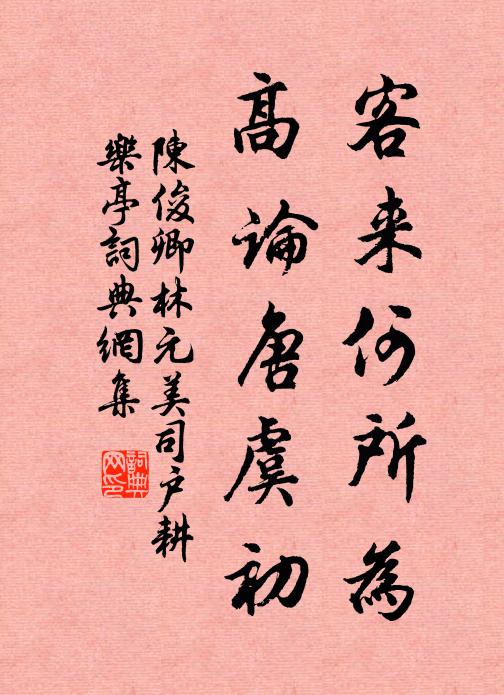 客来何所為
高論唐虞初
陳俊卿林元美司户耕
樂亭詞典網集
詞典網印